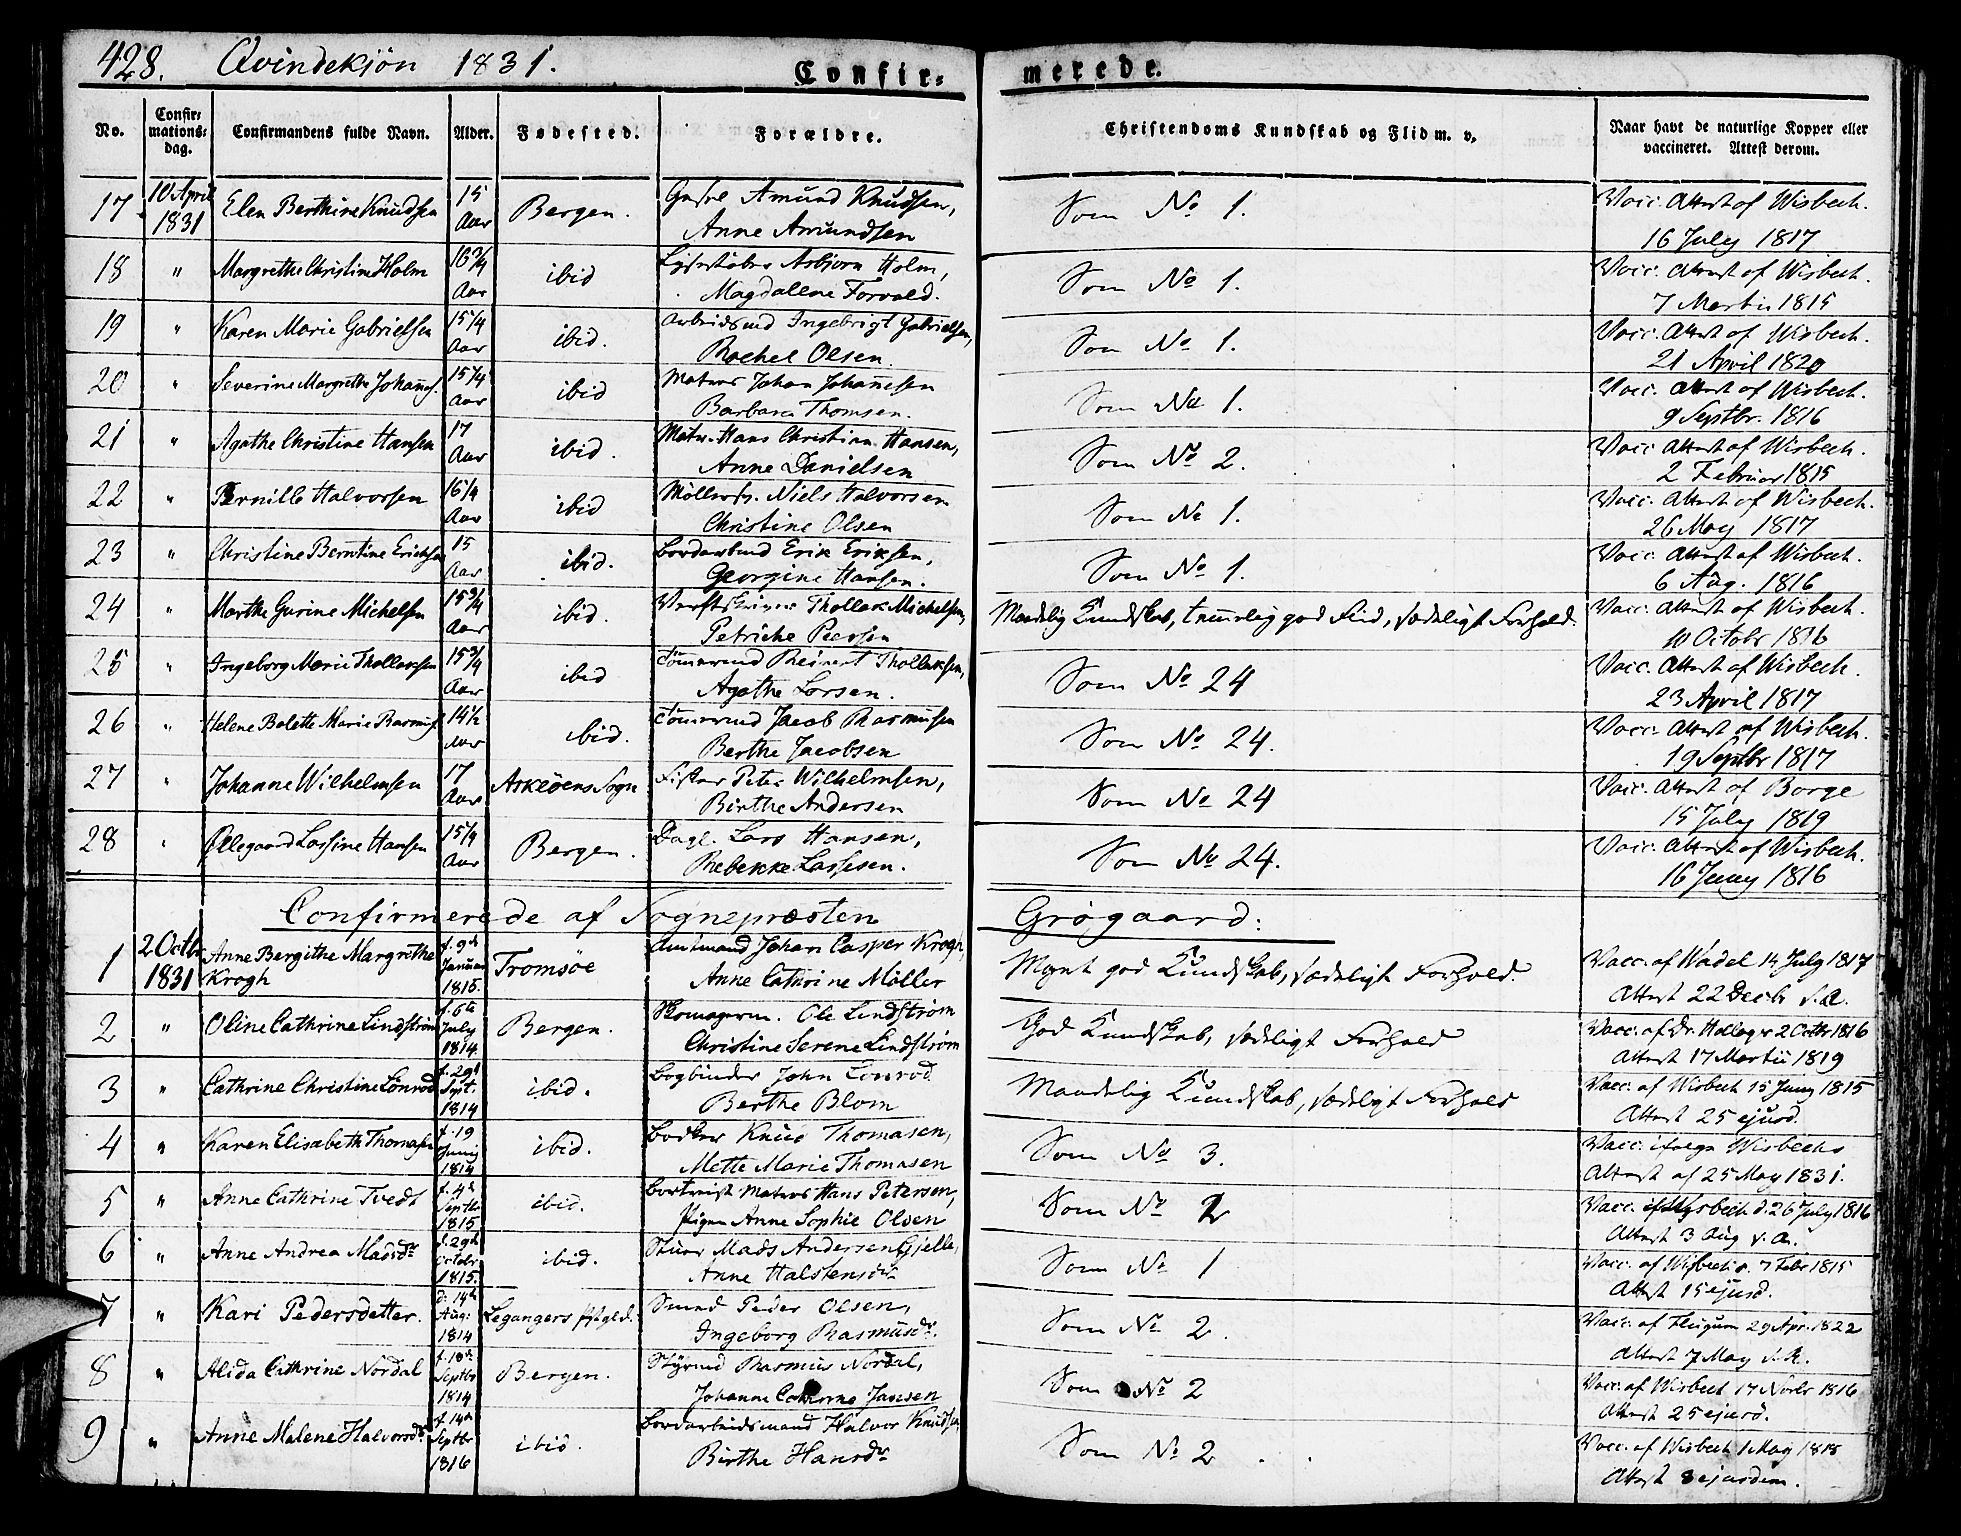 428. Qvindekjön 1831. Confir- merede.
No. Confir-mations-dag. Confirmandens fulde Navn. Alder. Fødested. Forældre. Christendoms Kundskab og Flid m. v. Naar havt de naturlige Kopper eller vaccineret. Attest derom.
17 10 April 1831 Elen Berthine Knudsen 15 Aar Bergen. Amund Knudsen, Anne Amundsen Som No 1. Vacc. Attest af Wisbech. 16 July 1817
18 " Margrethe Christine Holm 16 3/4 Aar ibid Asbjørn Holm, Magdalene Forvald. Som No 1. Vacc. Attest af Wisbech. 7 Martii 1815
19 " Karen Marie Gabrielsen 15 1/4 Aar ibid. Arbeidsmd Ingebrigt Gabrielsen, Rachel Olsen. Som No 1. Vacc. Attest af Wisbech. 21 April 1820
20 " Severine Margrethe Johannes. 15 1/4 Aar ibid Matros Johan Johannesen Barbara Thomsen. Som No 1. Vacc. Attest af Wisbech. 9 Septbr. 1816
21 " Agathe Christine Hansen 17 Aar ibid. Matr. Hans Christian Hansen, Anne Danielsen Som No 2. Vacc. Attest af Wisbech. 2 Februar 1815
22 " Pernille Halvorsen 16 1/4 Aar ibid Niels Halvorsen Christine Olsen Som No 1. Vacc. Attest af Wisbech. 26 May 1817
23 " Christine Berntine Ericksen 15 Aar ibid. Erik Eriksen, Georgine Hansen. Som No 1. Vacc. Attest af Wisbech. 6 Aug. 1816
24 " Marthe Gurine Michelsen 15 3/4 Aar ibid. Verftskriver Thollak Michelsen, Petriche Peersen Maadelig Kundskab, temmelig god Flid, sædeligt Forhold. Vacc. Attest af Wisbech. 10 Octobr 1816
25 " Ingeborg Marie Thollaksen 15 3/4 Aar ibid Tömmermd Reinert Thollaksen, Agathe Larsen. Som No 24 Vacc. Attest af Wisbech. 23 April 1817
26 " Helene Bolette Marie Rasmus. 14 1/2 Aar ibid. Tömmermd Jacob Rasmusen Berthe Jacobsen Som No 24. Vacc. Attest af Wisbech. 19 Septbr 1817
27 " Johanne Wilhelmsen 17 Aar Askeöens Sogn Fisker Peter Wilhelmsen, Birthe Andersen Som No 24 Vacc. Attest af Borge 15 July 1819
28 " Ollegaard Lassine Hansen 15 1/4 Aar Bergen. Dagl. Lars Hansen, Rebekke Lassesen. Som No 24. Vacc. Attest af Wisbech. 16 Juny 1816
Confirmerede af Sognepræsten Grögaard:
1 2 Octbr 1831 Anne Bergithe Margrethe Krogh f. 9de Januar 1815. Tromsöe Amtmand Johan Casper Krogh, Anne Cathrine Möller Meget god Kundskab, sædeligt Forhold. Vacc. af Wadel 14 July 1817 Attest 22 Decbr s. A.
2 " Oline Cathrine Lindström f. 6te July 1814. Bergen. Skomagerm. Ole Lindstrøm Christine Serene Lindstrøm God Kundskab, sædeligt Forhold Vacc. af Dr. Hollager 2 Octbr 1816 Attest 17 Martii 1819
3 " Cathrine Christine Lönrod f. 29de Sept. 1814 ibid. Bogbinder John Lönrod. Berthe Blom Maadelig Kundskab, sædeligt Forhold Vacc. af Wisbech 15 Juny 1815 Attest 25 ejusd.
4 " Karen Elisabeth Thomasen f. 19 Juny 1814 ibid. Bødker Knud Thomasen, Mette Marie Thomasen Som No 3. Vacc. ifølge Wisbechs Attest af 25 May 1831.
5 " Anne Cathrine Tvedt f. 4de Septbr 1815 ibid. Matros Hans Petersen, Pigen Anne Sophie Olsen Som No 2 Vacc. af Wysbech d. 26 July 1816 Attest 3 Aug s. A.
6 " Anne Andrea Madsdr f. 29de Octobr 1815. ibid. Mads Andersen Gjelle, Anne Halstensdr Som No 1 Vacc. af Wisbech d. 7 Febr 1815 Attest 15 ejusd.
7 " Kari Pedersdatter. d. 14de Aug. 1814 Legangers Pgjeld. Smed Peder Olsen, Ingeborg Rasmusdr. Som No 2. Vacc. af Flugum 29 Apr. 1822 Attest 7 May s. A.
8 " Alida Cathrine Nordal f. 18de Septbr 1814 Bergen. Styrmd Rasmus Nordal, Johanne Cathrine Jansen Som No 2 Vacc. af Wisbech 17 Novbr 1816 Attest 25 ejusd.
9 " Anne Malene Halvorsdr f. 14de Septbr 1816 ibid. Bordarbeidsmand Halvor Knudsen, Birthe Hansdr Som No 2 Vacc. af Wisbech 1 May 1818 Attest 8 ejusdem.